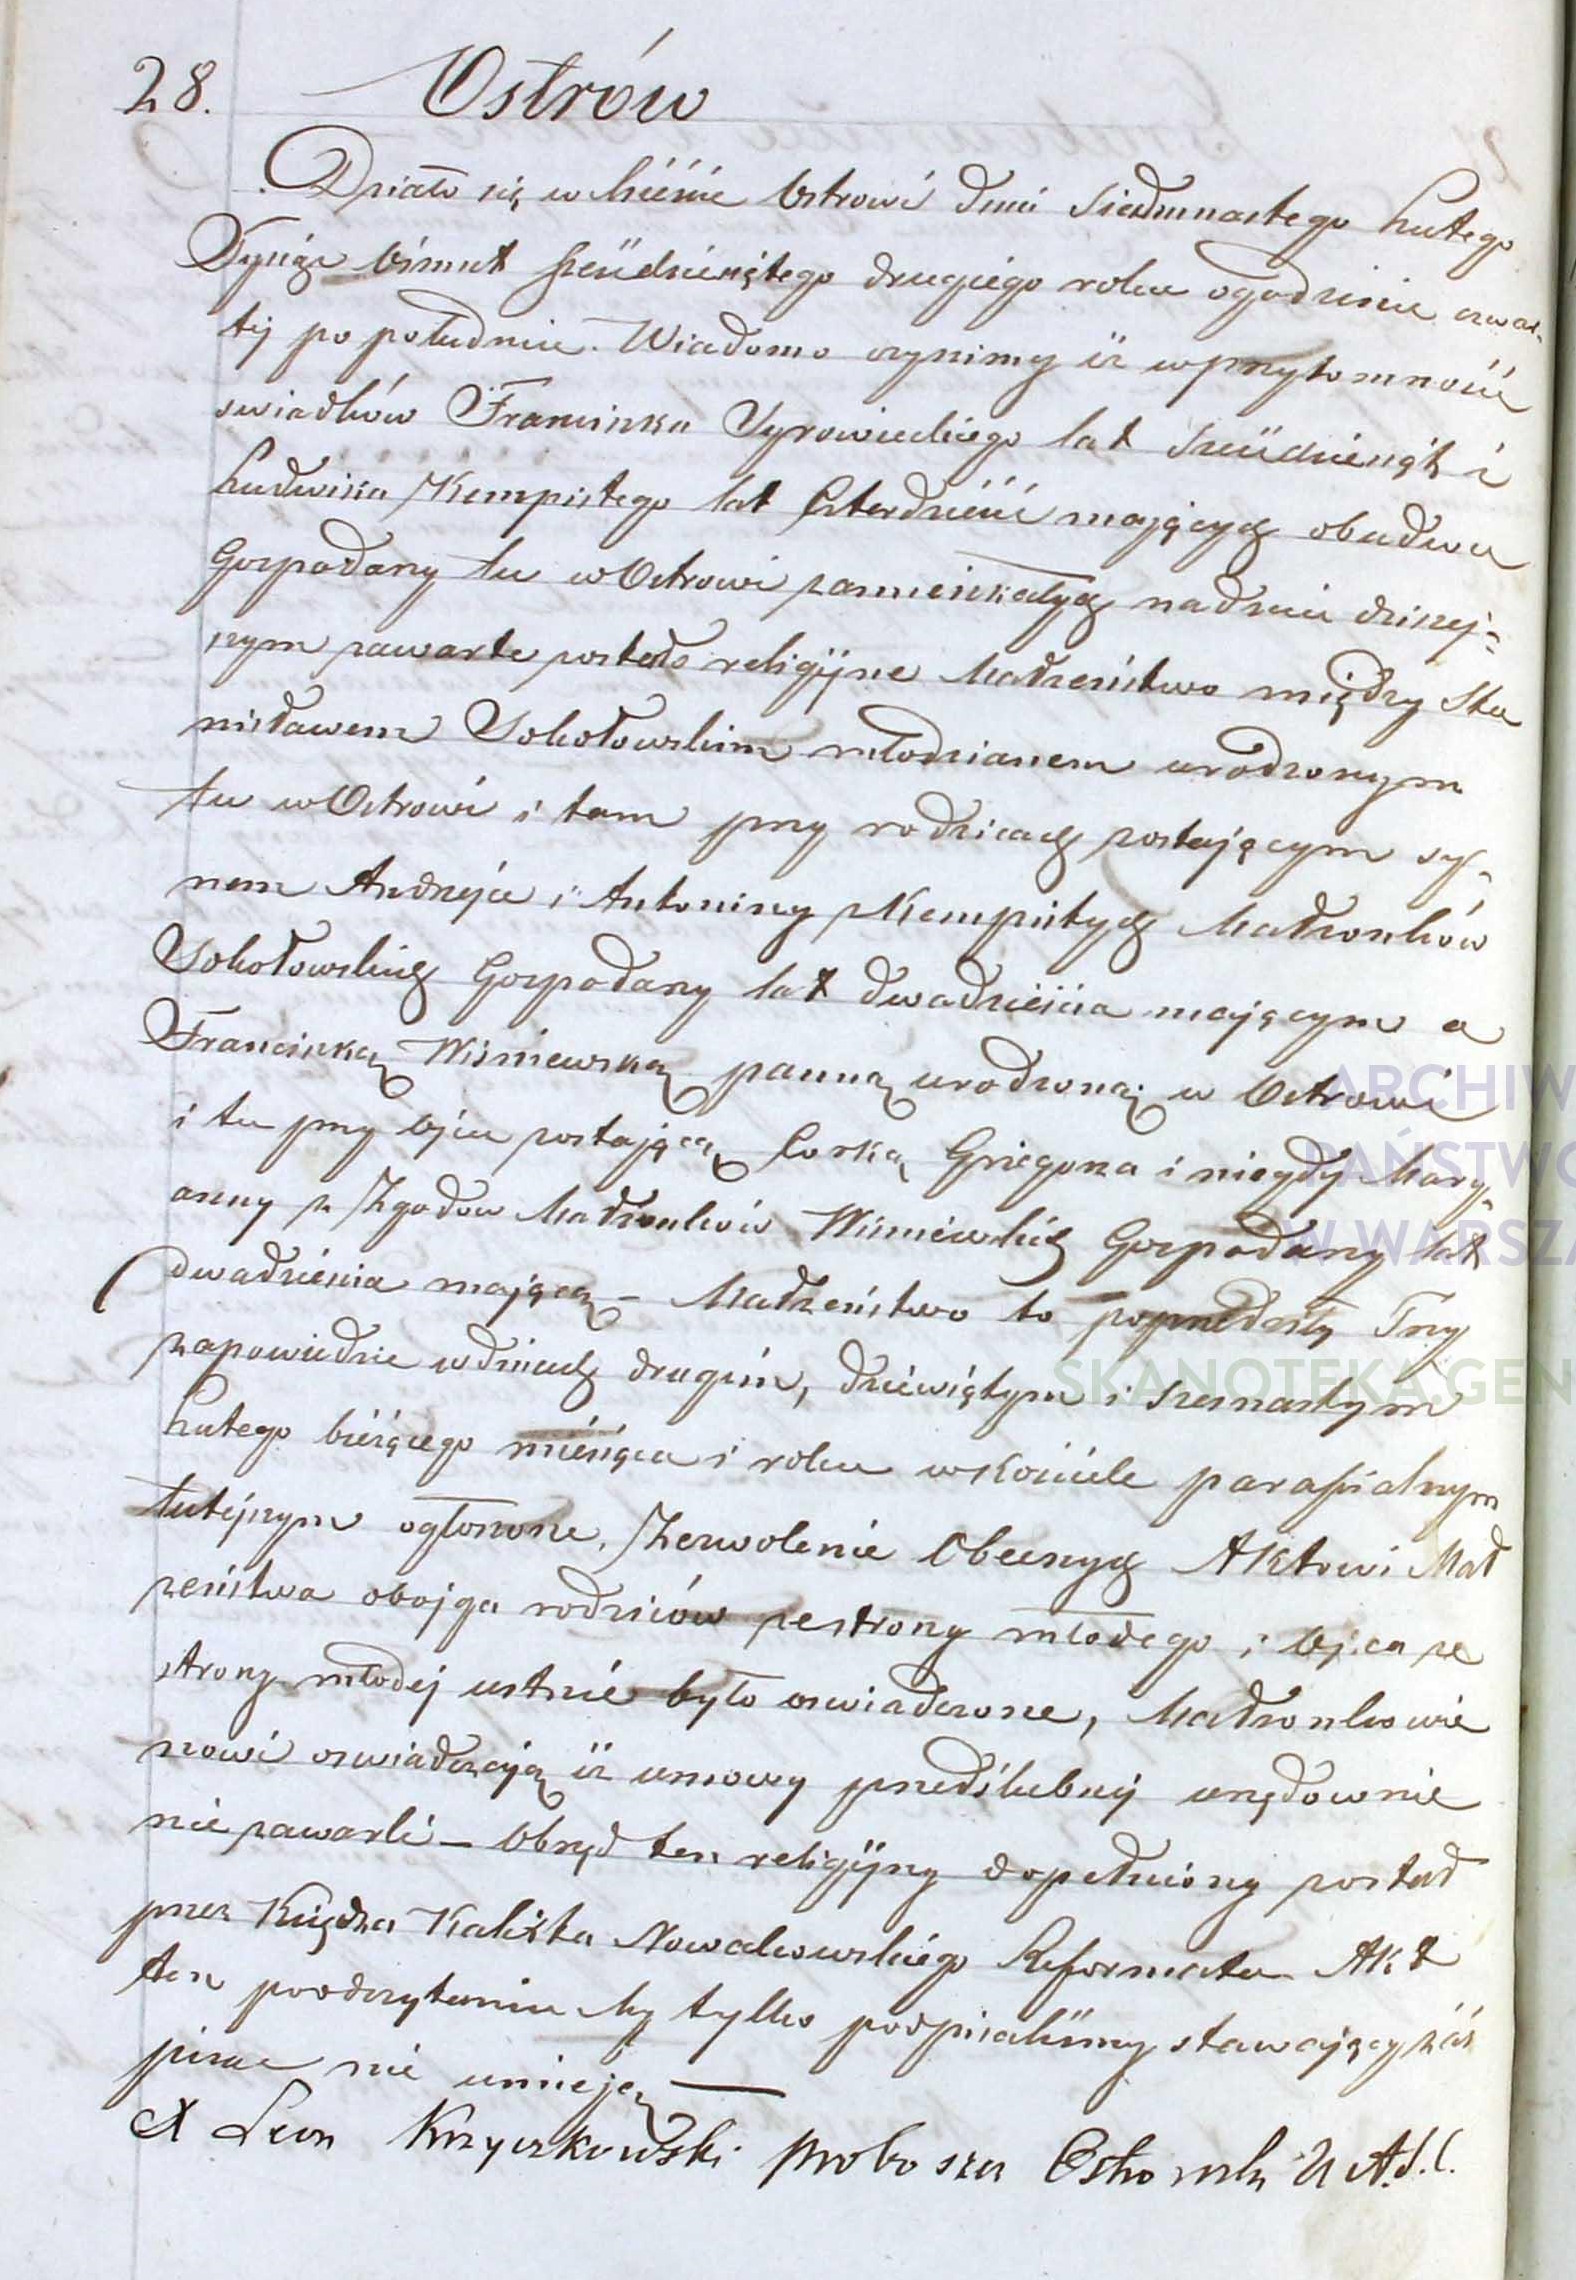 28. Ostrów
Działo się w Mieście Ostrowi dnia Siedmnastego Lutego
Tysiąc ośmset sześćdziesiątego drugiego roku ogodzinie czwar-
tej po południu. Wiadomo czynimy iż wprzytomności
swiadków Franciszka Syrowieckiego lat sześćdziesiąt i
Ludwika Kempistego lat Czterdzieści mających obudwu
Gospodarzy tu w Ostrowi zamieszkałych nadniu dzisiej-
szym zawarte zostało religijne Małżeństwo między Sta
nisławem Sokołowskim młodzianem urodzonym
tu w Ostrowi i tam przy rodzicach zostającym sy-
nem Andrzeja i Antoniny z Kempistych Małżonków
Sokołowskich Gospodarzy lat dwadzieścia mającym a
Franciszką Wiśniewską panną urodzoną w Ostrowi
i tu przy ojcu zostającą Corką Grzegorza i niegdy Mary-
anny z Zgodów Małżonków Wiśniewskich Gospodarzy lat
dwadzieścia mającą – Małżeństwo to poprzedziły Trzy
zapowiedzie wdniach drugim, dziewiątym i szesnastym
Lutego bieżącego miesiąca i roku w kościele parafialnym
tutejszym ogłoszone. Zezwolenie Obecnych Aktowi Mał
żeństwa obojga rodziców ze strony młodego i ojca ze
strony młodej ustnie było oswiadczone, Małżonkowie
nowi oswiadczają iż umowy przedślubnej urzędownie
nie zawarli – Obrzęd ten religijny dopełniony został
przez Księdza Kalixta Nowakowskiego Reformata Akt
ten poodczytaniu My tylko podpisaliśmy stawający zaś
pisać nie umieją —
X Leon Krzyczkowski Proboszcz Ostrowsk U A.S.C.
ARCHIW
PAŃSTWO
W WARSZA
SKANOTEKA.GEN